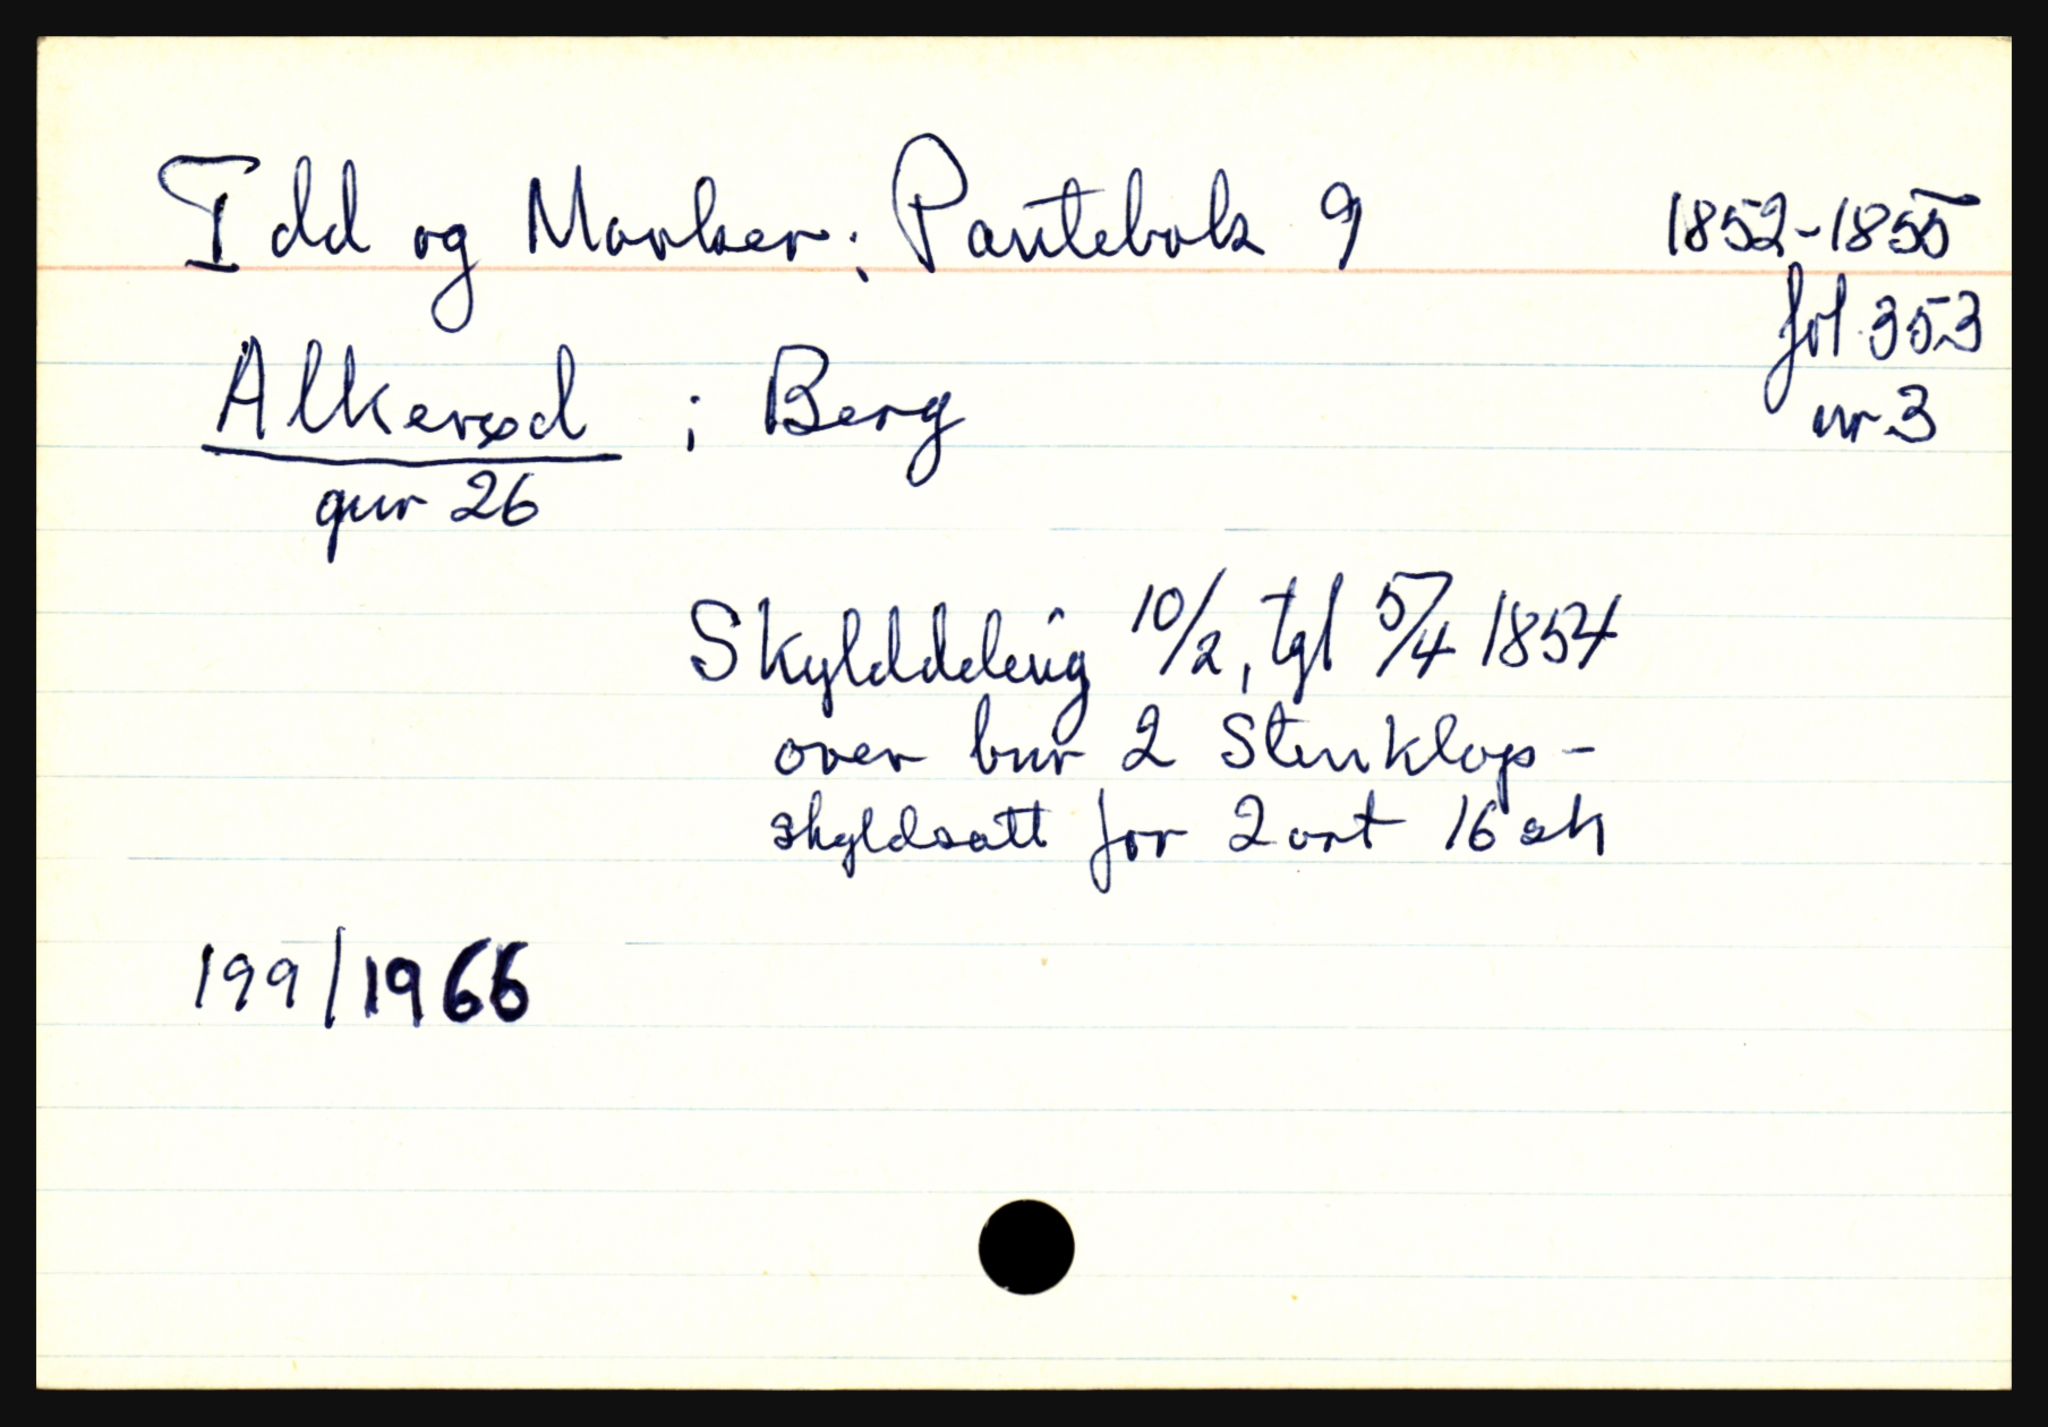 Idd og Marker: Pantebok 9 1852-1855
fol 353
Alkerød i Berg nr 3
gnr 26
Skylddeling 10/2, tgl 5/4 1854
over bnr 2 Stenklop-
skyldsatt for 2 ort 16 sk
199/1966